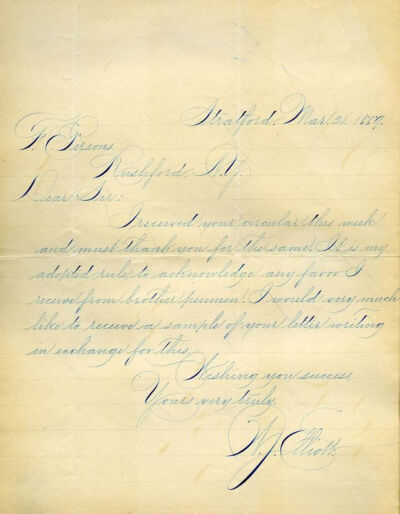 Stratford, Mar. 21. 1889.
F. Persons,
Rushford, N.Y.
Dear Sir:
I received your circular this week
and must thank you for the same. It is my
adopted rule to acknowledge any favor I
receive from brother penmen. I would very much
like to receive a sample of your letter writing
in exchange for this.
Wishing you success
Yours very truly,
W. J. Elliott.